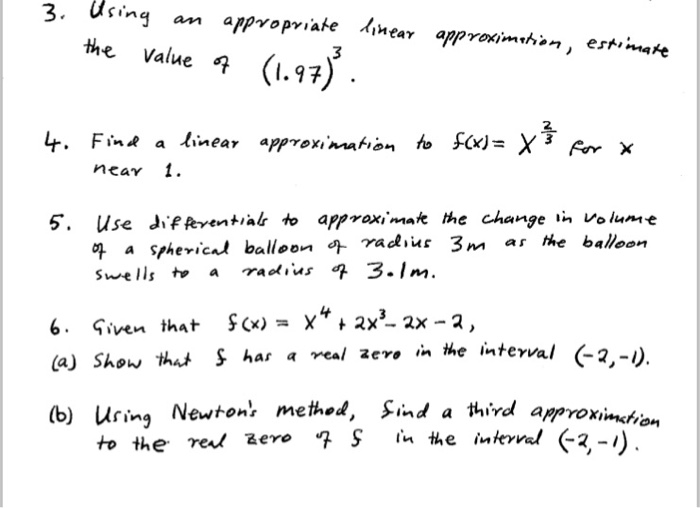 3. Using an appropriate linear approximation, estimate
the value of (1.97)³.
4. Find a linear approximation to f(x) = x^(2/3) for x
near 1.
5. Use differentials to approximate the change in volume
of a spherical balloon of radius 3m as the balloon
swells to a radius of 3.1m.
6. Given that f(x) = x⁴ + 2x³ - 2x - 2,
(a) Show that f has a real zero in the interval (-2,-1).
(b) Using Newton's method, find a third approximation
to the real zero of f in the interval (-2,-1).